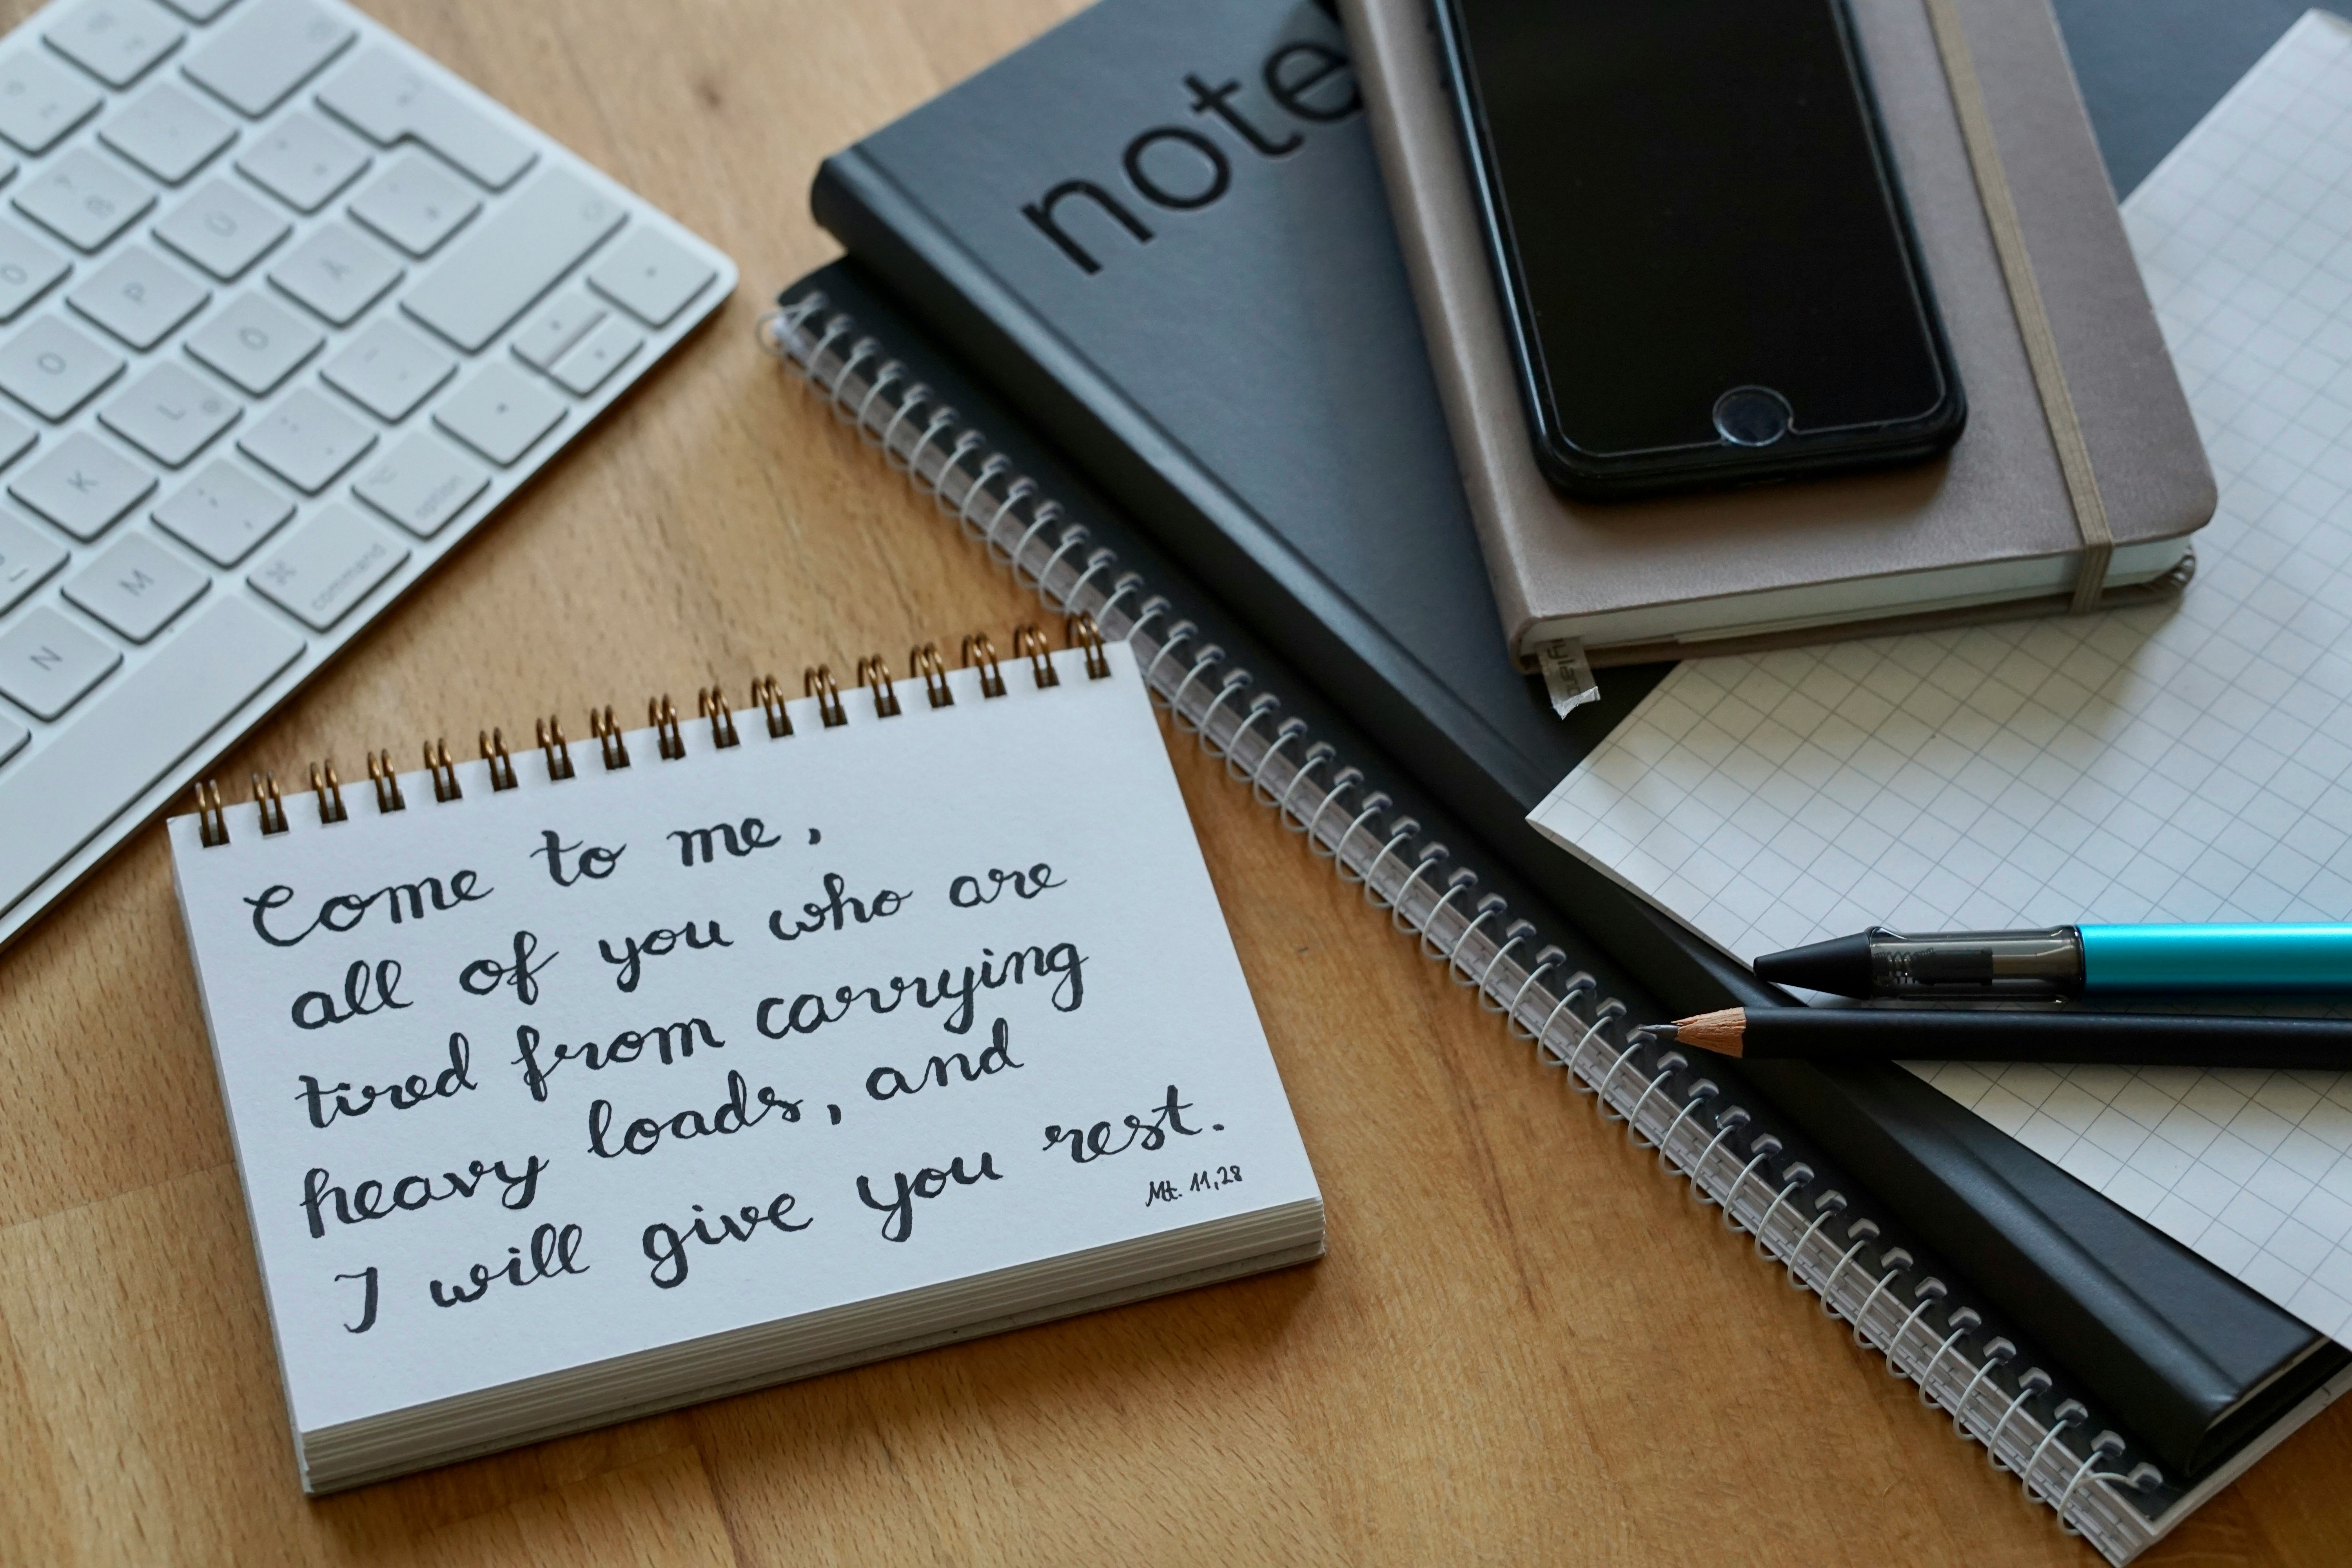 Come to me,
all of you who are
tired from carrying
heavy loads, and
I will give you rest.
Mt. 11,28
note
Ü
P
Ä
O
Ö
L
K
M
N
option
command